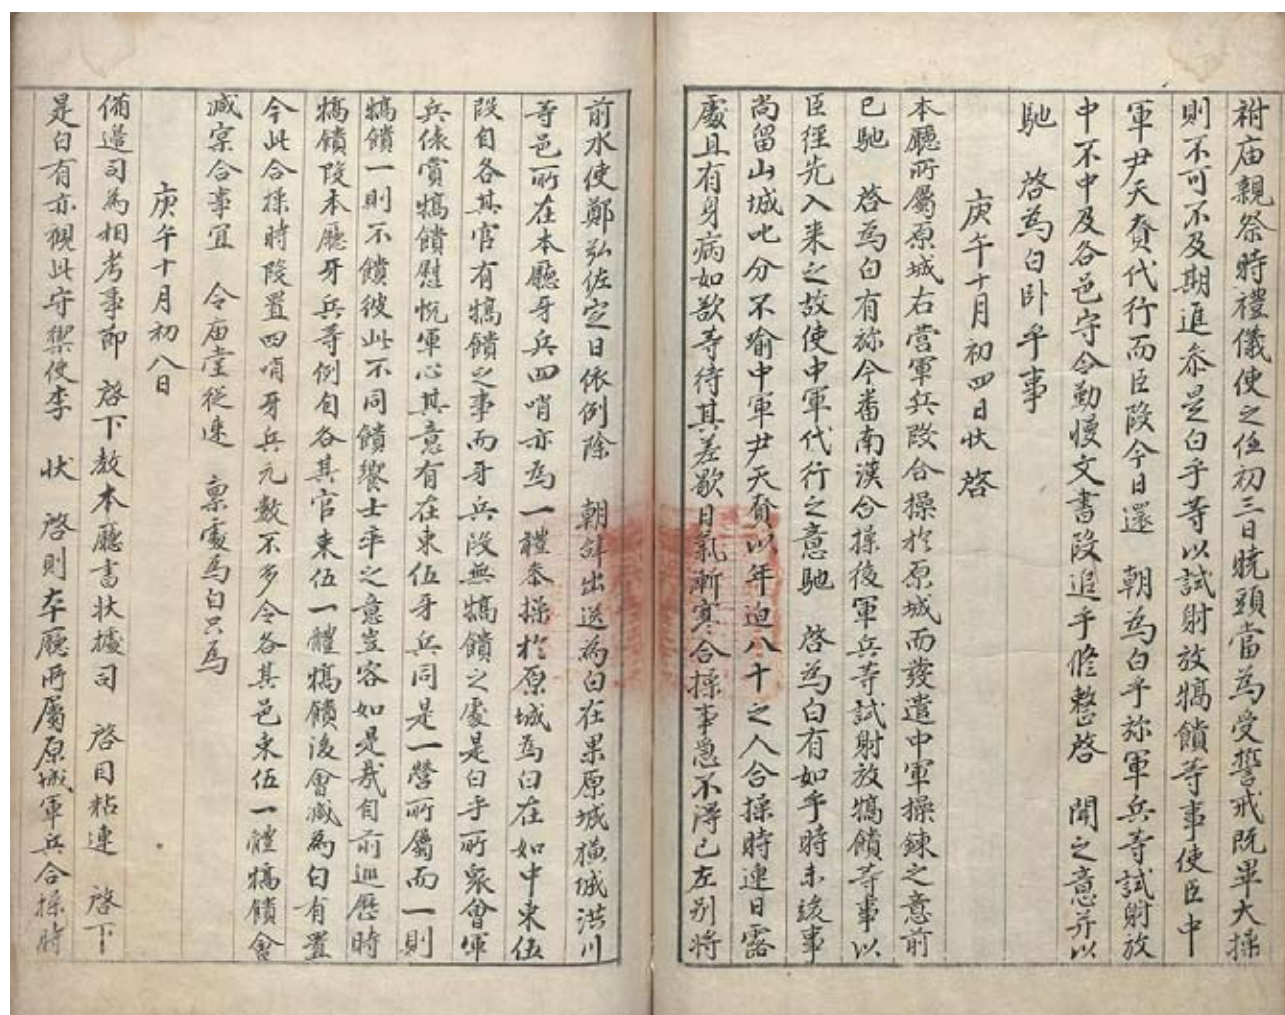 祔庙親祭時禮儀使之任初三日曉頭當為受誓戒既畢大操
則不可不及期進参是白乎等以試射放犒饋等事使臣中
軍尹天賚代行而臣段今日還 朝為白乎旀軍兵等試射放
中不中及各邑守令勤慢文書段追乎修整啓 聞之意并以
馳 啓為白卧乎事
庚午十月初四日状啓
本廳所屬原城右営軍兵段合操於原城而發遣中軍操鍊之意前
已馳 啓為白有旀今番南漢合操後軍兵等試射放犒饋等事以
臣徑先入来之故使中軍代行之意馳 啓為白有如乎時未竣事
尚留山城叱分不喻中軍尹天賚以年迫八十之人合操時連日露
處且有身病如欲等待其差歇日氣漸寒合操事急不淂已左别将
前水使鄭弘佐㝎日依例除 朝辞出送為白在果原城横城洪川
等邑所在本廳牙兵四哨亦為一體参操於原城為白在如中束伍
段自各其官有犒饋之事而牙兵段無犒饋之處是白乎所衆會軍
兵依賞犒饋慰悦軍心其意有在束伍牙兵同是一營所屬而一則
犒饋一則不饋彼此不同饋饗士卒之意豈容如是哉自前巡歷時
犒饋段本廳牙兵等例自各其官束伍一體犒饋後會减為白有置
今此合操時段置四哨牙兵元數不多令各其邑束伍一體犒饋會
减㝎合事宜 令庙堂従速 禀處為白只為
庚午十月初八日
備邊司為相考事即 啓下教本廳書状據司 啓目粘連 啓下
是白有亦覌此守禦使李 状 啓則本廳所屬原城軍兵合操時